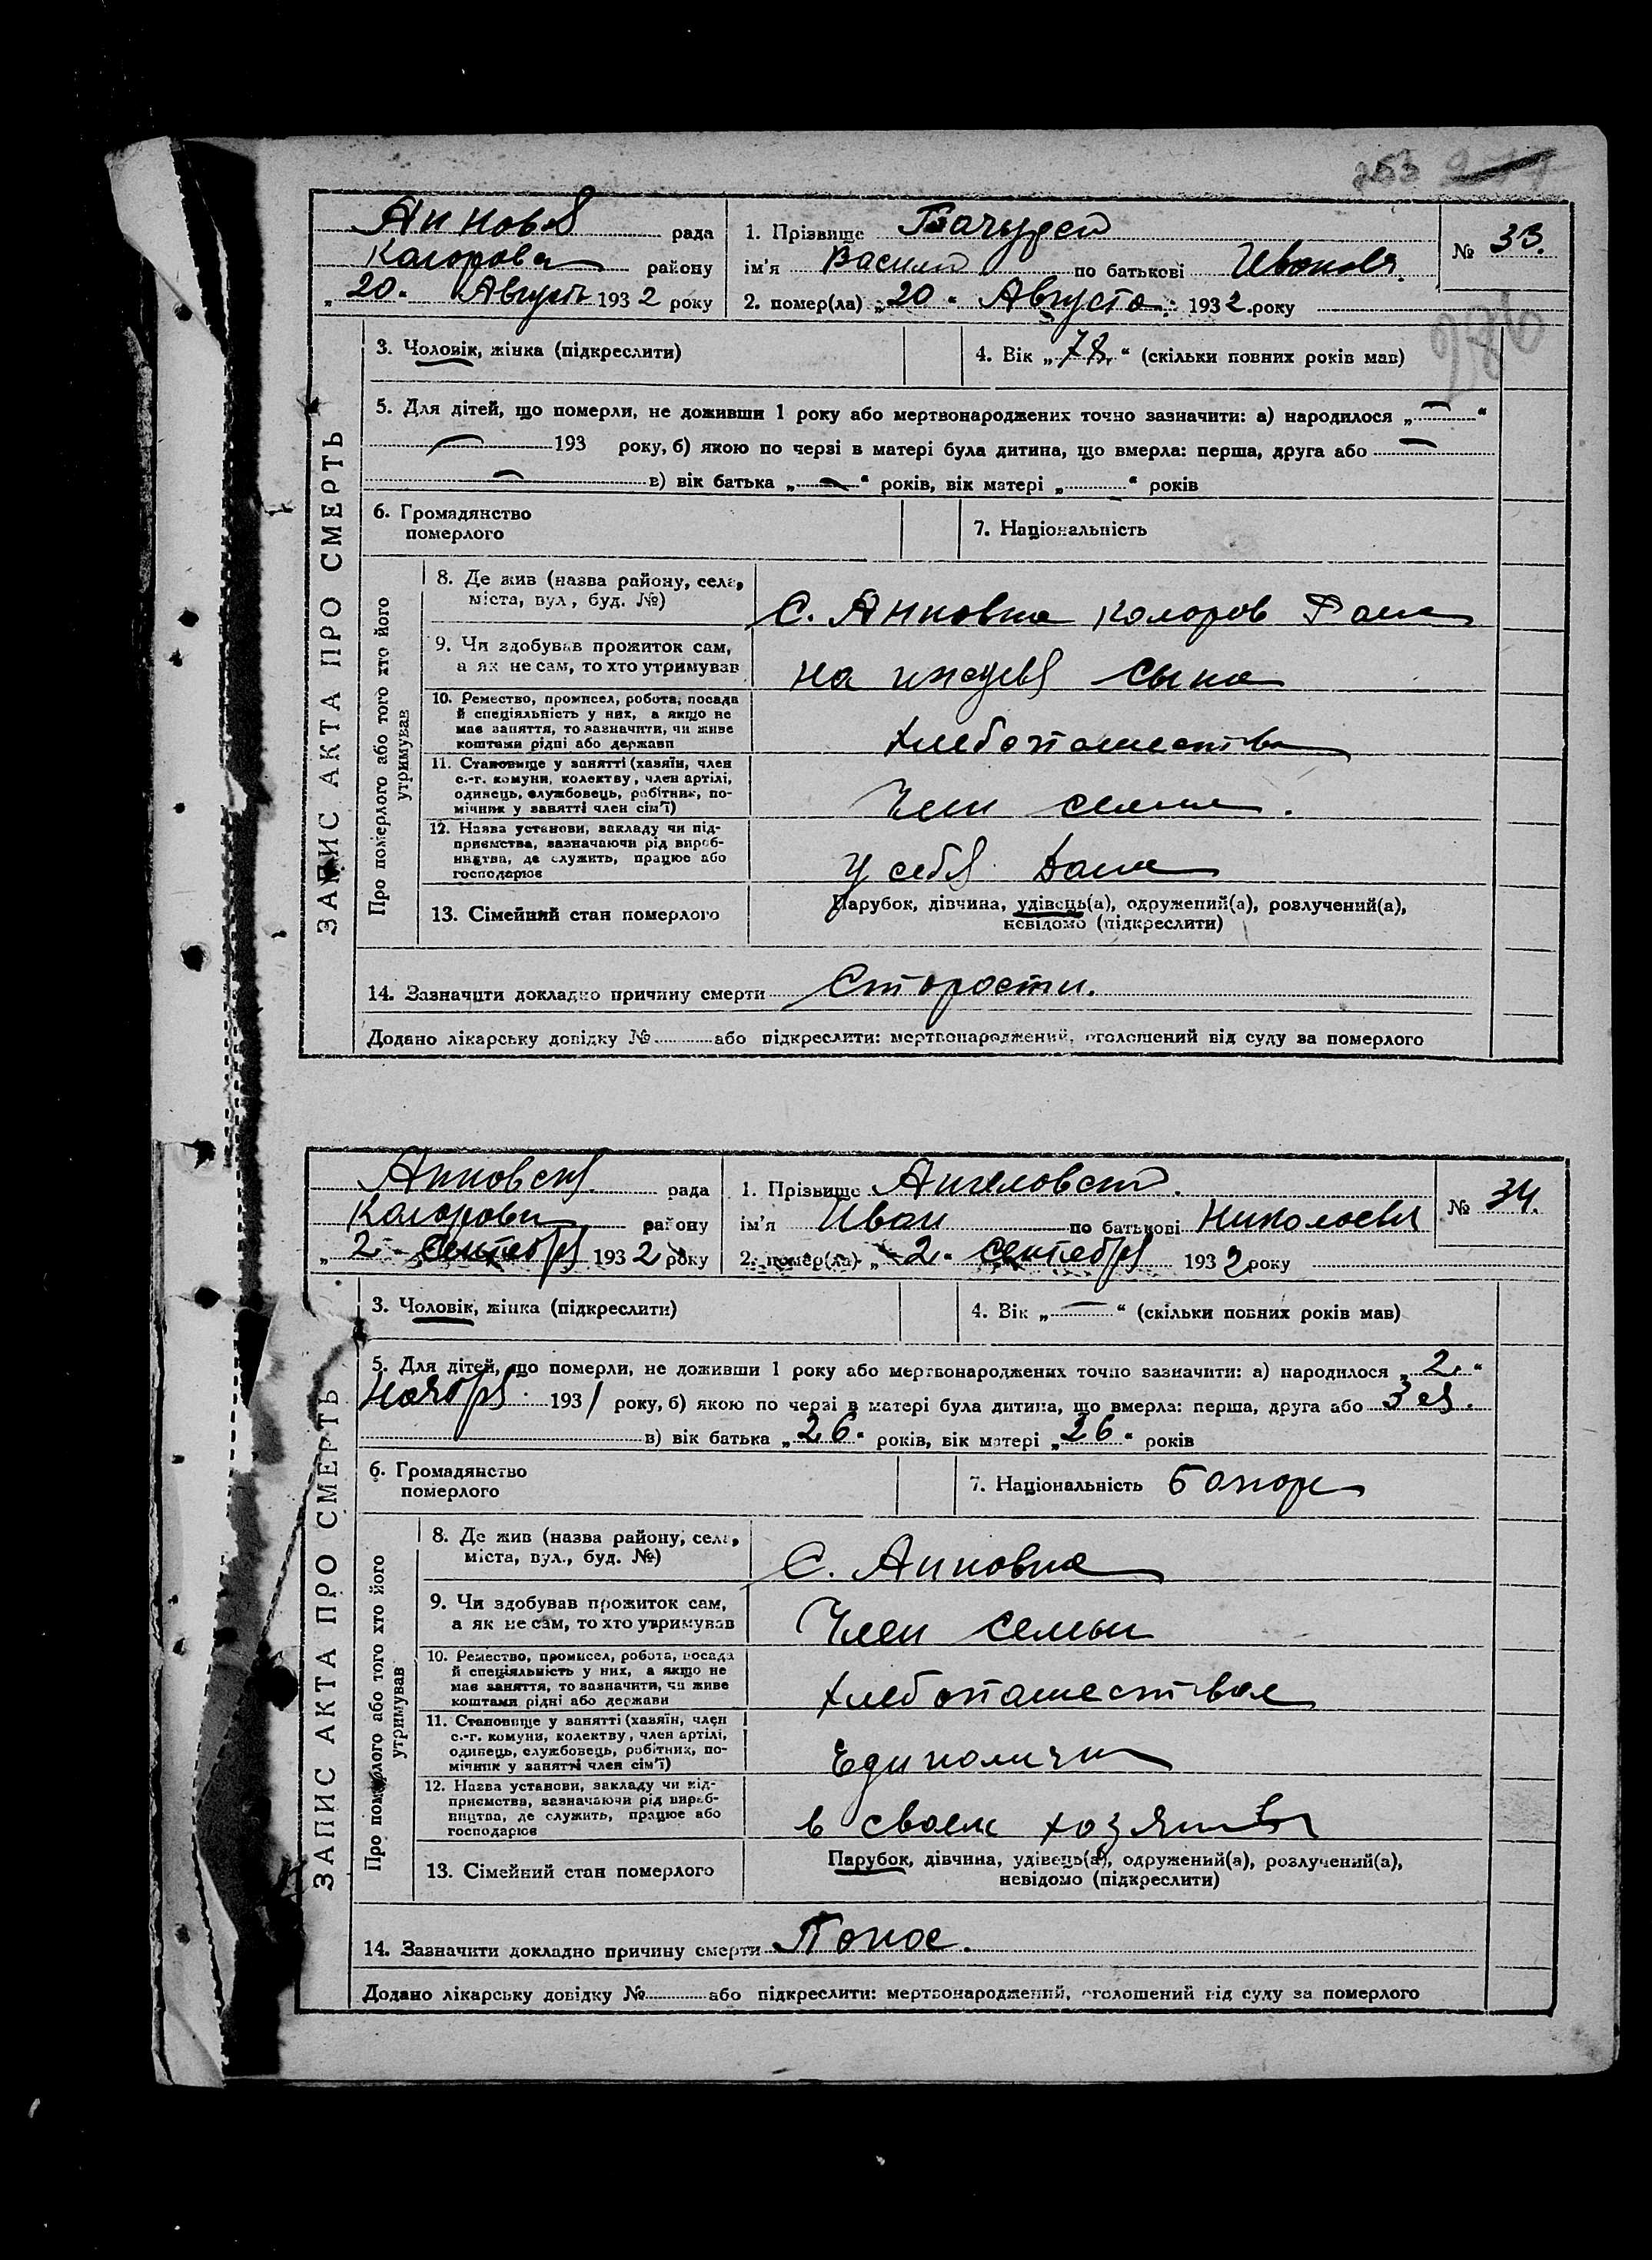 253
ЗАПИС АКТА ПРО СМЕРТЬ
рада
району
„20“ Август 1932 року
1. Прізвище
ім'я Василий по батькові Иванов.
2. помер(ла) „20“ Августа 1932 року
№ 33.
286
3. Чоловік, жінка (підкреслити)
4. Вік „78“ (скільки повних років мав)
5. Для дітей, що померли, не доживши 1 року або мертвонароджених точно зазначити: а) народилося „—“
— 193 року, б) якою по черзі в матері була дитина, що вмерла: перша, друга або —
— в) вік батька „—“ років, вік матері „ “ років
6. Громадянство
померлого
7. Національність
Про померлого або того хто його
утримував
8. Де жив (назва району, села,
міста, вул, буд. №)
С. Анновка
9. Чи здобував прожиток сам,
а як не сам, то хто утримував
на иждев сына
10. Ремество, промисел, робота, посада
й спеціяльність у них, а якщо не
має заняття, то зазначити, чи живе
коштами рідні або держави
хлебопашество
11. Становище у занятті (хазяїн, член
с.-г. комуни, колектву, член артілі,
одинець, службовець, робітник, по-
мічник у занятті член сім'ї)
Член семьи.
12. Назва установи, закладу чи під-
приємства, зазначаючи рід вироб-
ництва, де служить, працює або
господарює
У себя дома
13. Сімейний стан померлого
Парубок, дівчина, удівець(а), одружений(а), розлучений(а),
невідомо (підкреслити)
14. Зазначити докладно причину смерти Старости.
Додано лікарську довідку № або підкреслити: мертвонароджений, оголошений від суду за померлого
ЗАПИС АКТА ПРО СМЕРТЬ
рада
району
„2“ Сентебря 1932 року
1. Прізвище
ім'я Иван по батькові Николаевич
2. помер(ла) „2“ Сентебря 1932 року
№ 34.
3. Чоловік, жінка (підкреслити)
4. Вік „—“ (скільки повних років мав)
5. Для дітей, що померли, не доживши 1 року або мертвонароджених точно зазначити: а) народилося „2“
Ноября 1931 року, б) якою по черзі в матері була дитина, що вмерла: перша, друга або 3 ея.
в) вік батька „26“ років, вік матері „26“ років
6. Громадянство
померлого
7. Національність
Про померлого або того хто його
утримував
8. Де жив (назва району, села,
міста, вул., буд. №)
С. Анновка
9. Чи здобував прожиток сам,
а як не сам, то хто утримував
Член семьи
10. Ремество, промисел, робота, посада
й спеціяльність у них, а якщо не
має заняття, то зазначити, чи живе
коштами рідні або держави
хлебопашество
11. Становище у занятті (хазяїн, член
с.-г. комуни, колектву, член артілі,
одинець, службовець, робітник, по-
мічник у занятті член сім'ї)
Единолични
12. Назва установи, закладу чи під-
приємства, зазначаючи рід вироб-
ництва, де служить, працює або
господарює
в своем хозяйств
13. Сімейний стан померлого
Парубок, дівчина, удівець(а), одружений(а), розлучений(а),
невідомо (підкреслити)
14. Зазначити докладно причину смерти Понос.
Додано лікарську довідку № або підкреслити: мертвонароджений, оголошений від суду за померлого